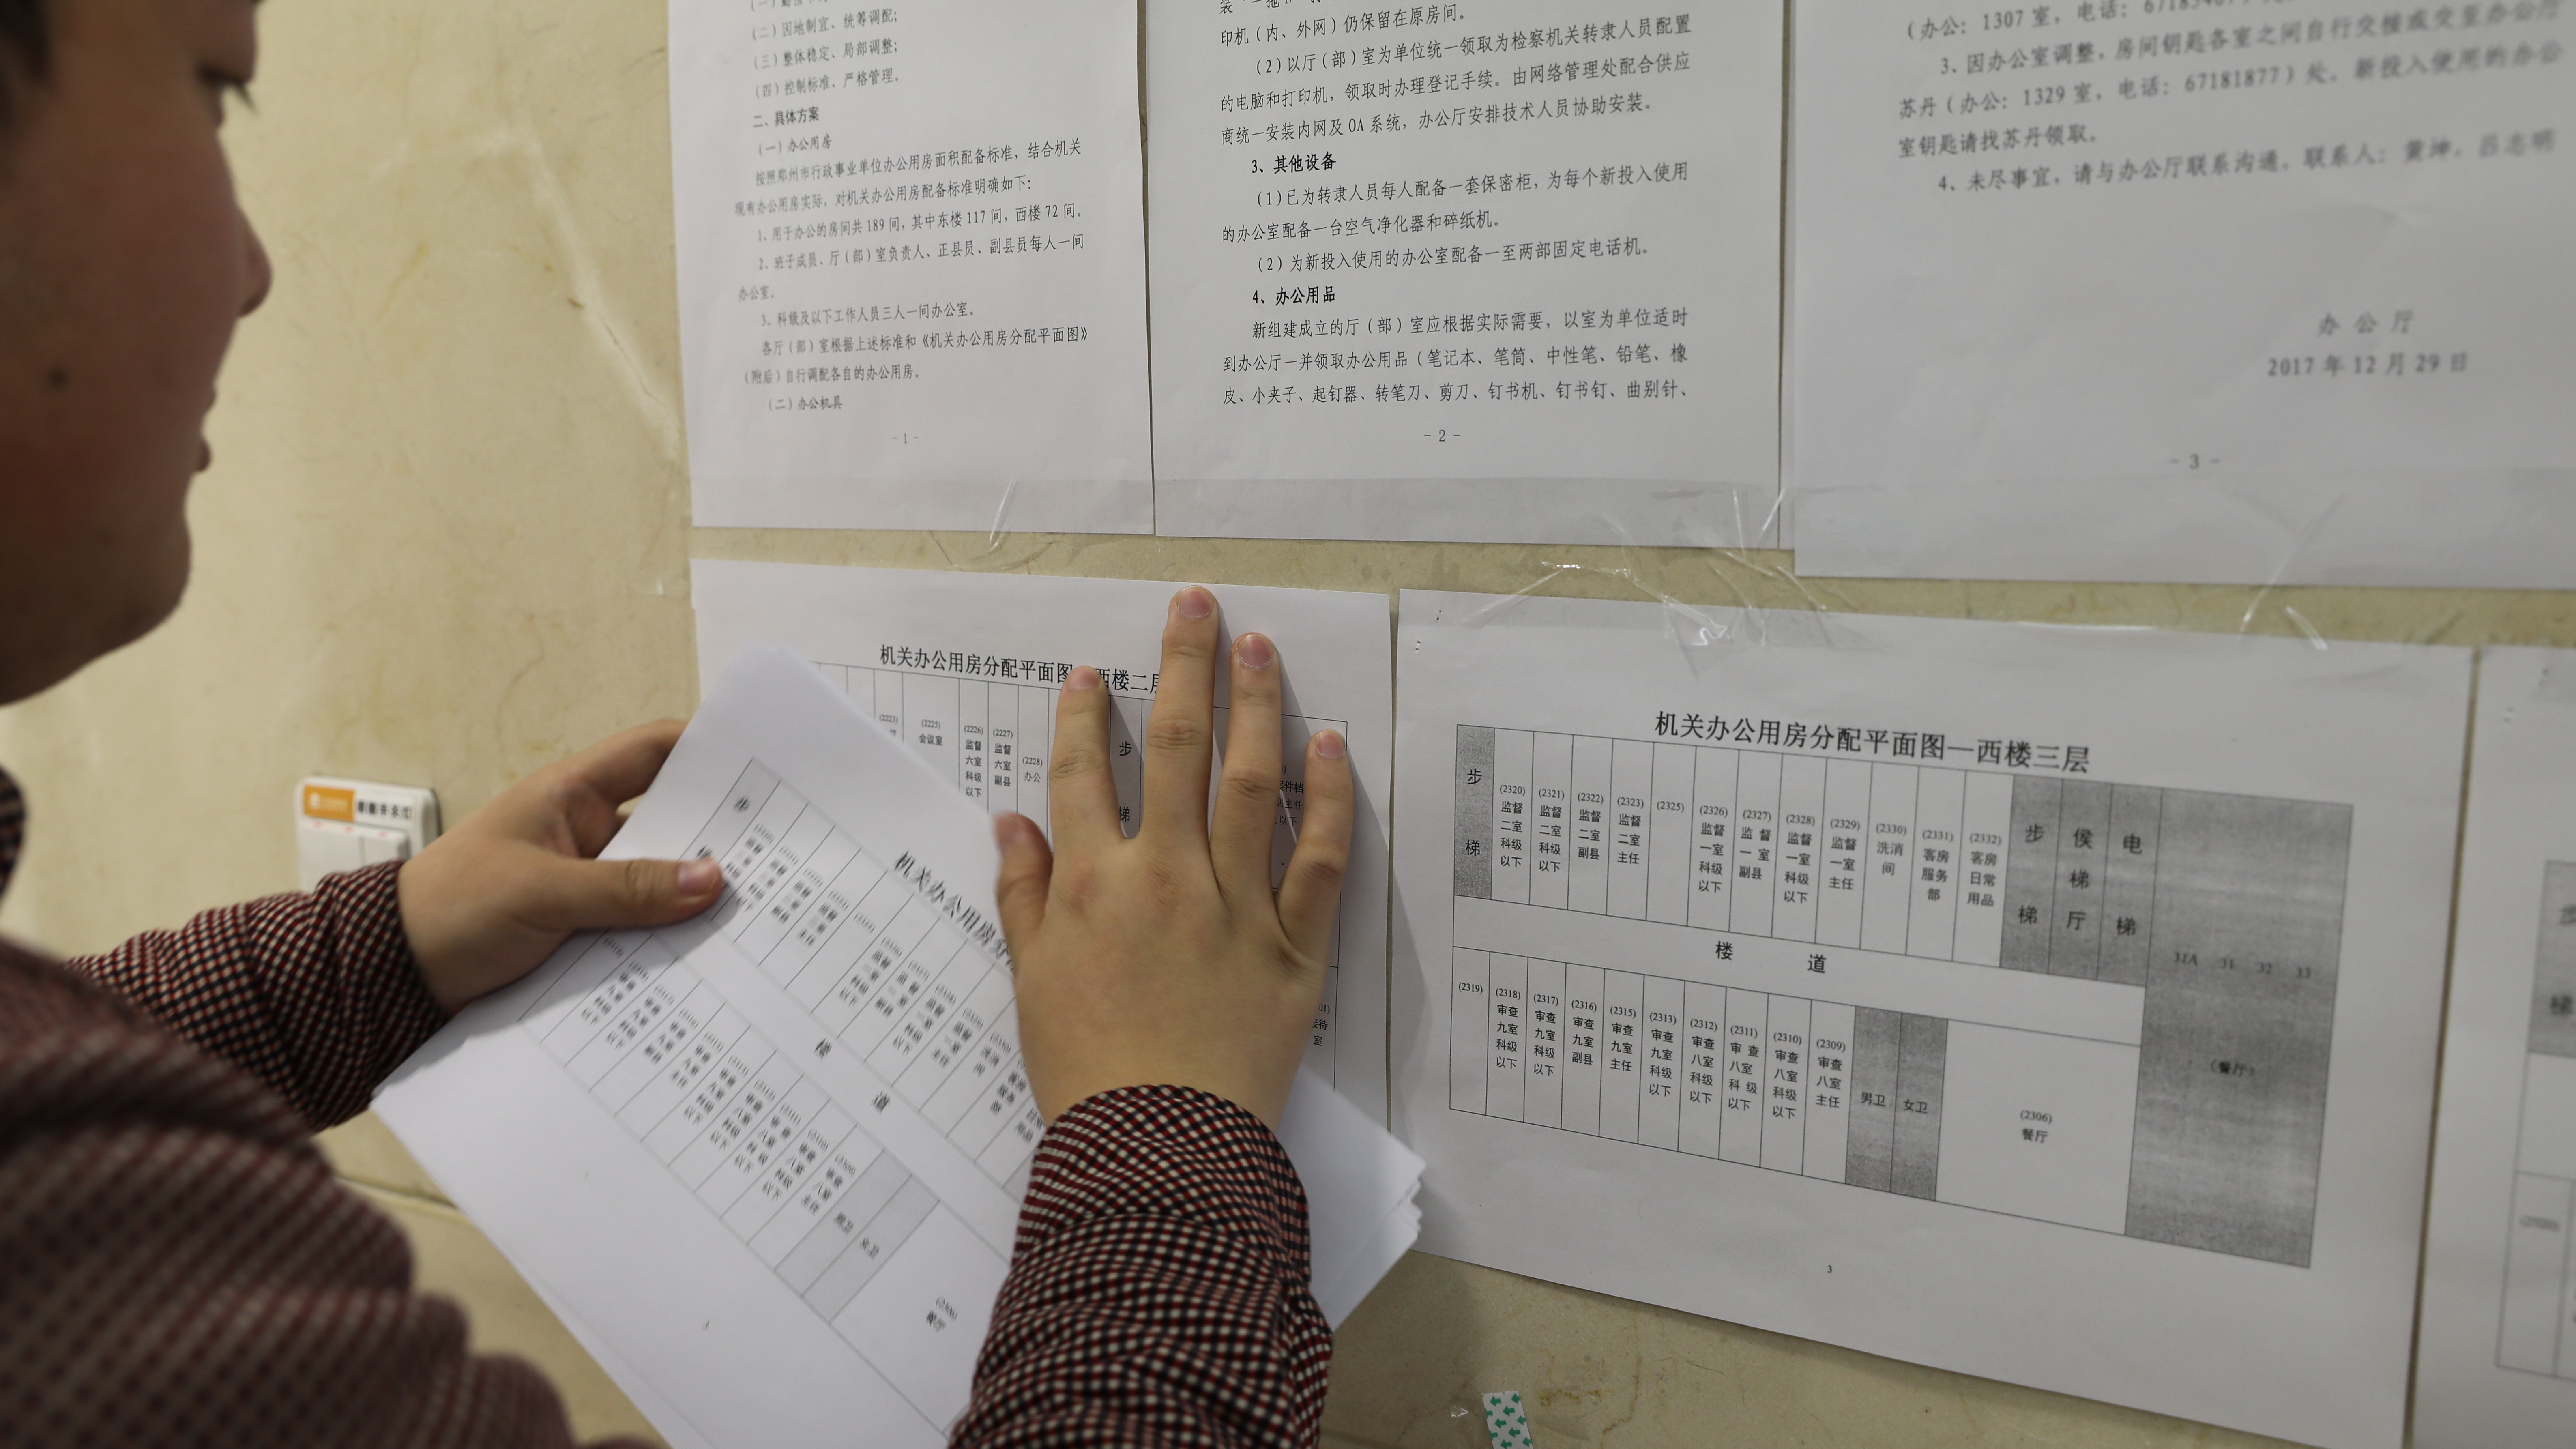 (二)因地制宜、统筹调配;
(三)整体稳定、局部调整;
(四)控制标准、严格管理。
二、具体方案
(一)办公用房
按照郑州市行政事业单位办公用房面积配备标准，结合机关
现有办公用房实际，对机关办公用房配备标准明确如下：
1、用于办公的房间共189间，其中东楼117间，西楼72间。
2、班子成员、厅(部)室负责人、正县员、副县员每人一间
办公室。
3、科级及以下工作人员三人一间办公室。
各厅(部)室根据上述标准和《机关办公用房分配平面图》
(附后)自行调配各自的办公用房。
(二)办公机具
- 1 -
印机(内、外网)仍保留在原房间。
(2)以厅(部)室为单位统一领取为检察机关转隶人员配置
的电脑和打印机，领取时办理登记手续。由网络管理处配合供应
商统一安装内网及OA系统，办公厅安排技术人员协助安装。
3、其他设备
(1)已为转隶人员每人配备一套保密柜，为每个新投入使用
的办公室配备一台空气净化器和碎纸机。
(2)为新投入使用的办公室配备一至两部固定电话机。
4、办公用品
新组建成立的厅(部)室应根据实际需要，以室为单位适时
到办公厅一并领取办公用品(笔记本、笔筒、中性笔、铅笔、橡
皮、小夹子、起钉器、转笔刀、剪刀、钉书机、钉书钉、曲别针、
- 2 -
(办公：1307室，电话：
3、因办公室调整，房间钥匙各室之间自行交接或交至办公厅
苏丹(办公：1329室，电话：67181877)处。新投入使用的办公
室钥匙请找苏丹领取。
4、未尽事宜，请与办公厅联系沟通。联系人：黄坤、吕志明
办公厅
2017年12月29日
- 3 -
机关办公用房分配平面图 西楼二层
(2223)
(2225) 会议室
(2226) 监督六室科级以下
(2227) 监督六室副县
(2228) 办公
步梯
机关办公用房分配平面图—西楼三层
步梯
(2320) 监督二室科级以下
(2321) 监督二室科级以下
(2322) 监督二室副县
(2323) 监督二室主任
(2325)
(2326) 监督一室科级以下
(2327) 监督一室副县
(2328) 监督一室科级以下
(2329) 监督一室主任
(2330) 洗消间
(2331) 客房服务部
(2332) 客房日常用品
步梯
侯梯厅
电梯
31A 31 32 33
(餐厅)
楼道
(2319)
(2318) 审查九室科级以下
(2317) 审查九室科级以下
(2316) 审查九室副县
(2315) 审查九室主任
(2313) 审查九室科级以下
(2312) 审查八室科级以下
(2311) 审查八室科级以下
(2310) 审查八室科级以下
(2309) 审查八室主任
男卫
女卫
(2306) 餐厅
3
机关办公用房分
楼道
(2306) 餐厅